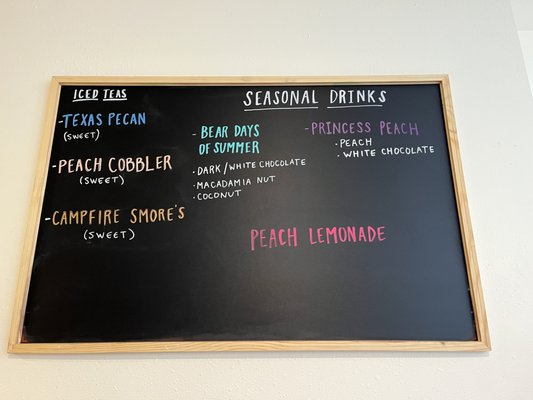 ICED TEAS
-TEXAS PECAN
(SWEET)
-PEACH COBBLER
(SWEET)
-CAMPFIRE SMORE'S
(SWEET)
SEASONAL DRINKS
- BEAR DAYS
OF SUMMER
· DARK/WHITE CHOCOLATE
· MACADAMIA NUT
· COCONUT
-PRINCESS PEACH
· PEACH
· WHITE CHOCOLATE
PEACH LEMONADE